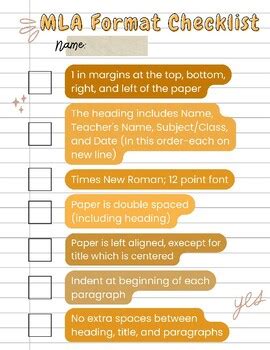 MLA Format Checklist
Name:
1 in margins at the top, bottom,
right, and left of the paper
The heading includes Name,
Teacher's Name, Subject/Class,
and Date (In this order-each on
new line)
Times New Roman; 12 point font
Paper is double spaced
(including heading)
Paper is left aligned, except for
title which is centered
Indent at beginning of each
paragraph
No extra spaces between
heading, title, and paragraphs
yes